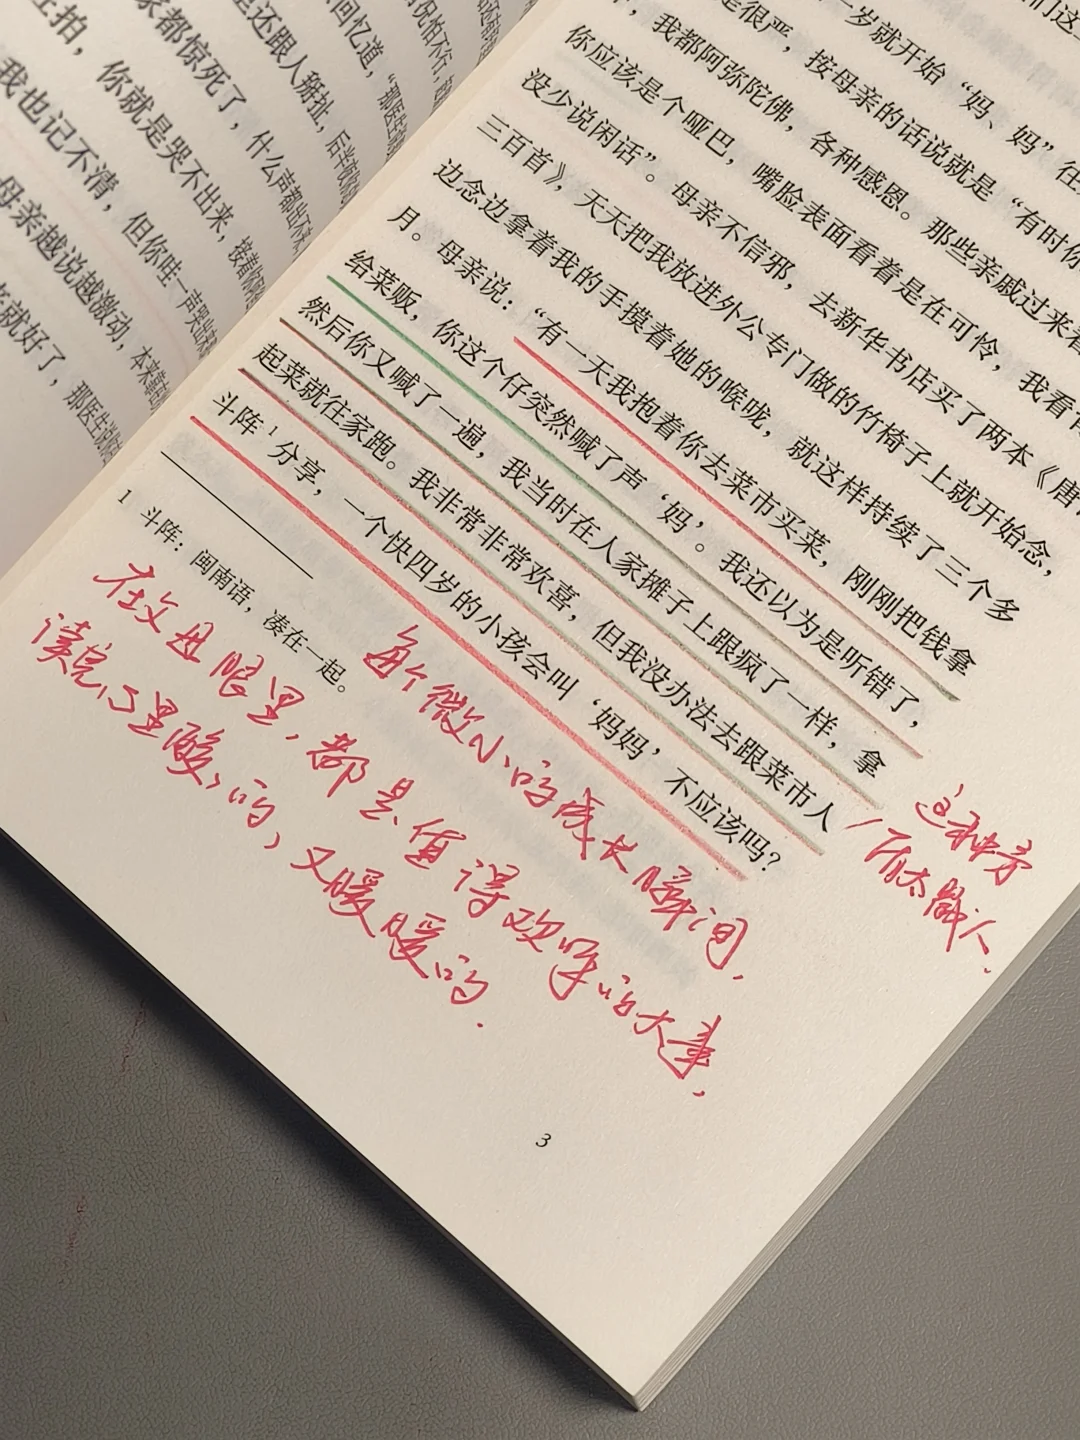 家都惊死了，什么声都出不来
在拍，你就是哭不出来，按着你
我也记不清，但你哇一声哭出来
母亲越说越激动，本来
来就好了，那医生说
还跟人掰扯，后半夜
回忆道，“那医生
们这
一岁就开始“妈、妈”往
是很严，按母亲的话说就是“有时你
，我都阿弥陀佛，各种感恩。那些亲戚过来看
你应该是个哑巴，嘴脸表面看着是在可怜，我看
没少说闲话”。母亲不信邪，去新华书店买了两本《唐
三百首》，天天把我放进外公专门做的竹椅子上就开始念，
边念边拿着我的手摸着她的喉咙，就这样持续了三个多
月。母亲说：“有一天我抱着你去菜市买菜，刚刚把钱拿
给菜贩，你这个仔突然喊了声‘妈’。我还以为是听错了，
然后你又喊了一遍，我当时在人家摊子上跟疯了一样，拿
起菜就往家跑。我非常非常欢喜，但我没办法去跟菜市人
斗阵¹分享，一个快四岁的小孩会叫‘妈妈’不应该吗？
1 斗阵：闽南语，凑在一起。
这种字
1后太戳人.
每个微小的成长瞬间,
在父母眼里,都是值得欢呼的大事,
读完心里酸酸的,又暖暖的.
3